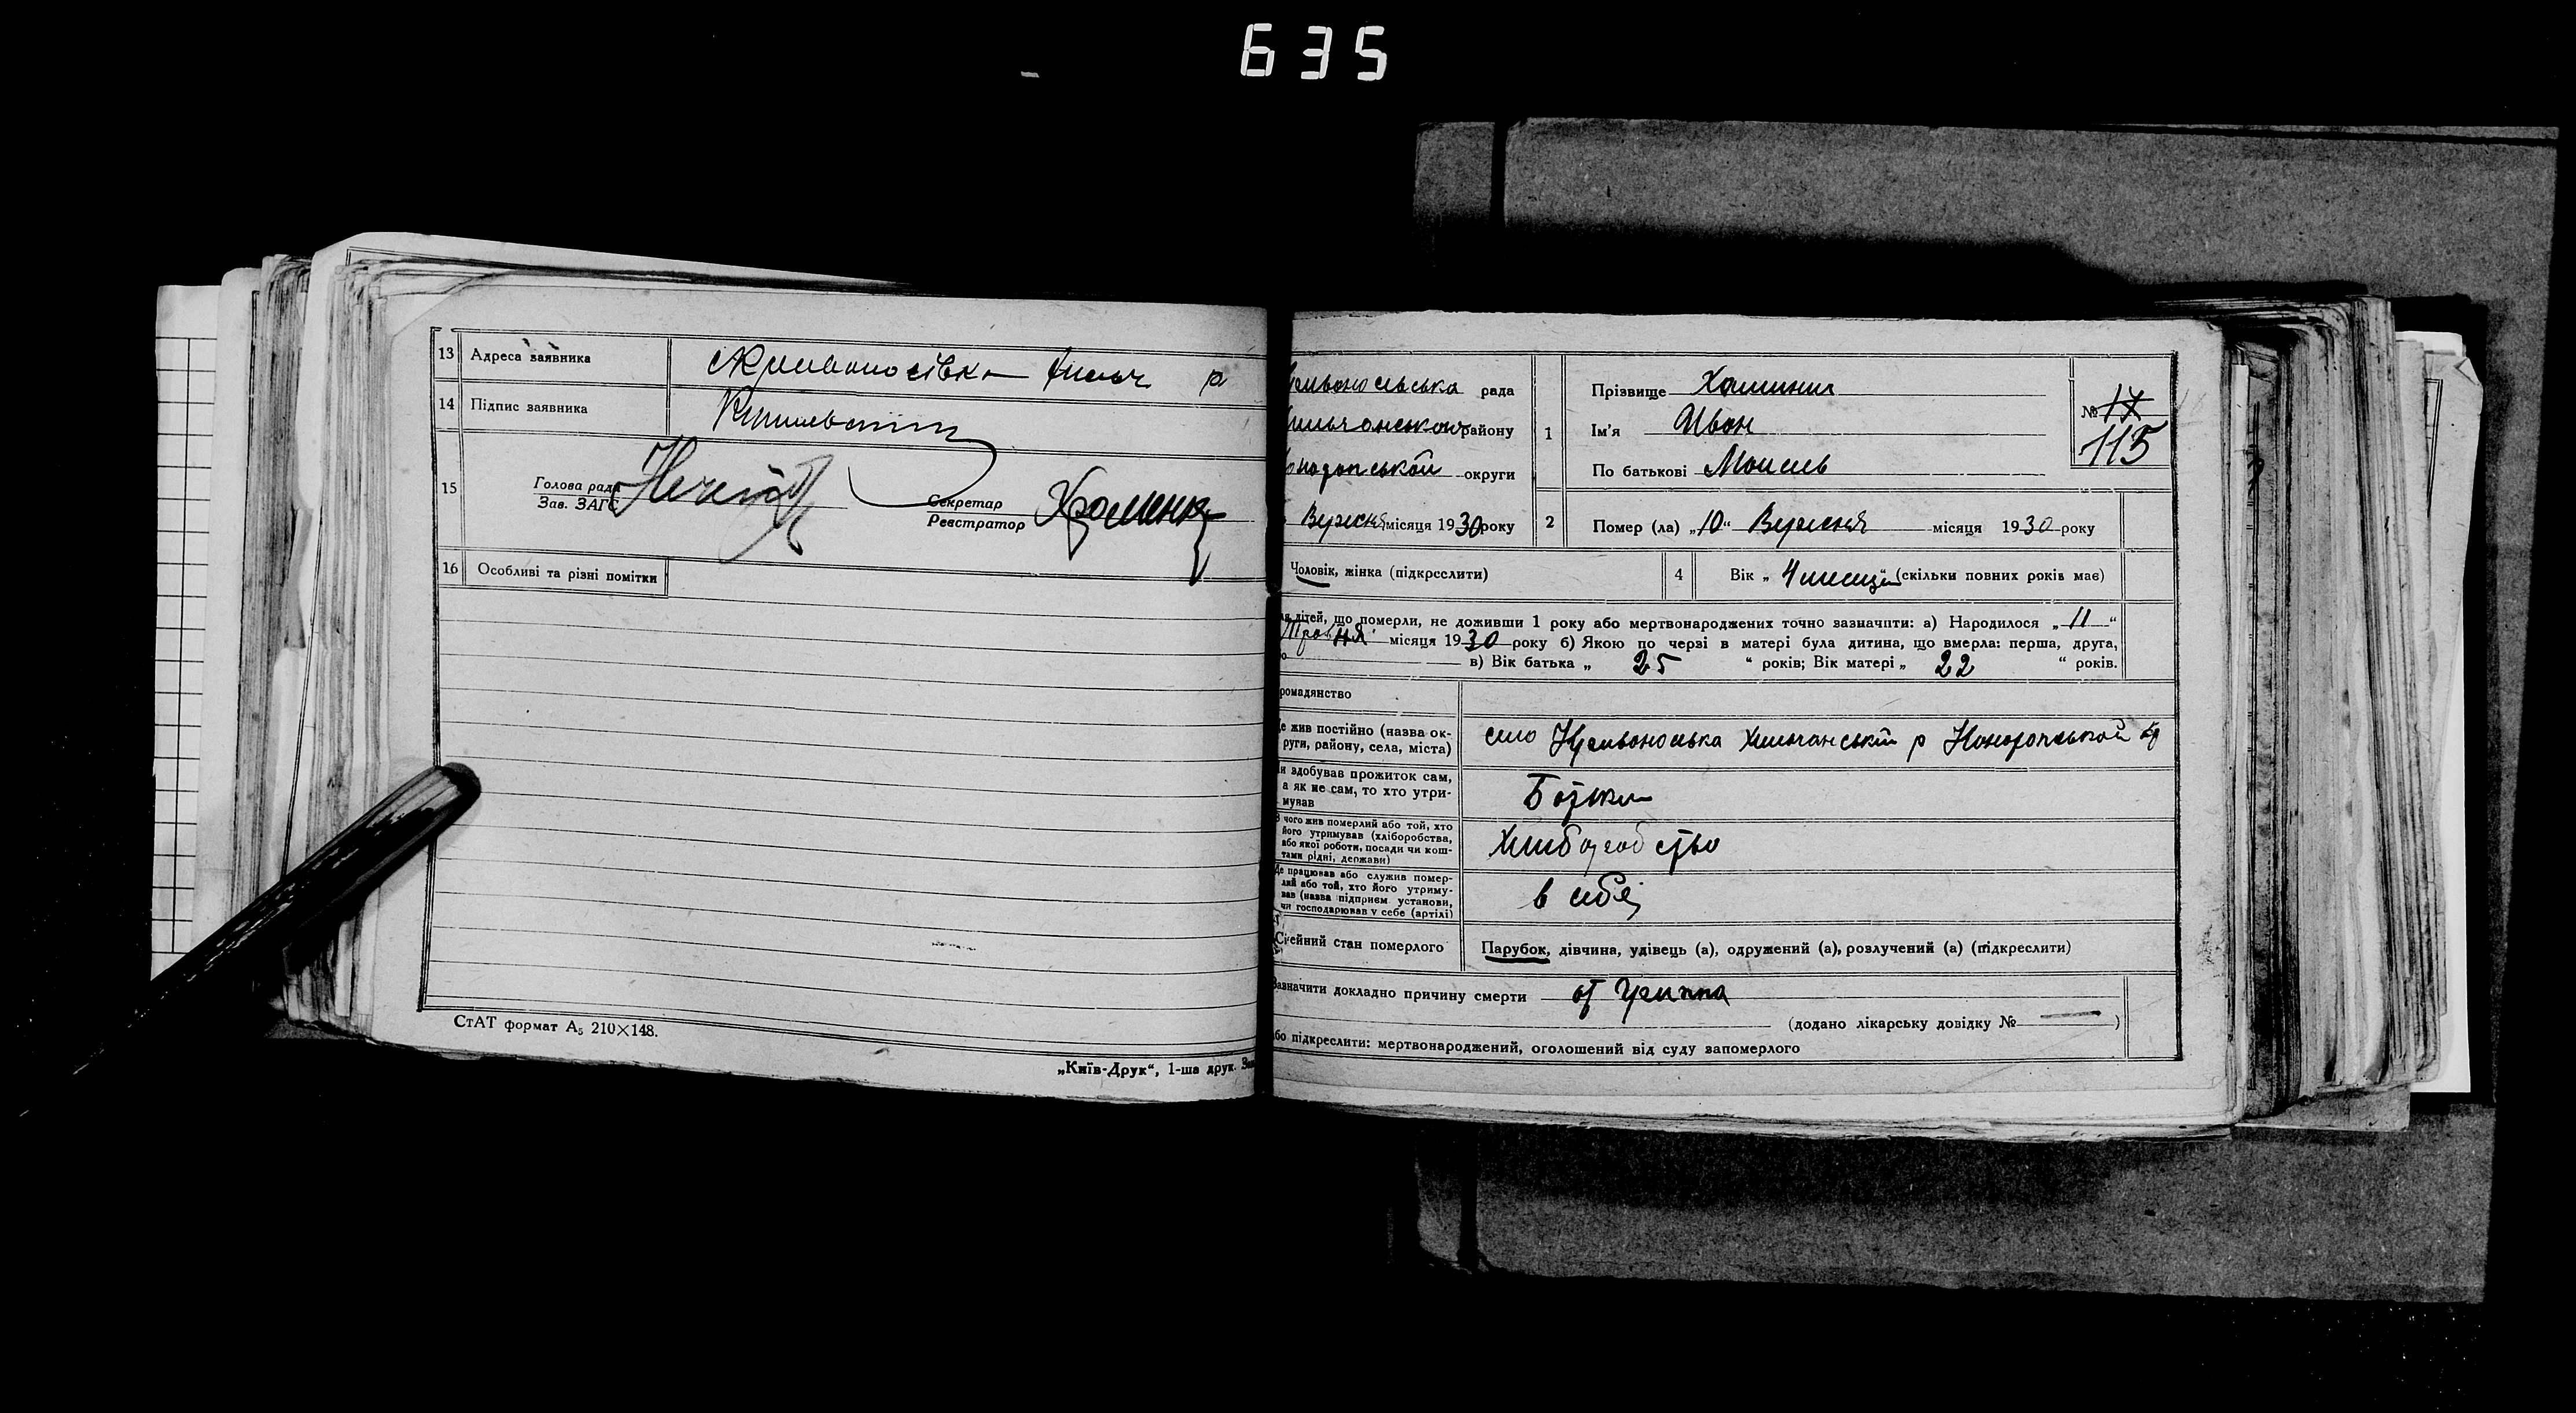 635
13 Адреса заявника Кривоносівка Хильч р
14 Підпис заявника
15 Голова ради
Зав. ЗАГС
Секретар
Реєстратор Хроменк
16 Особливі та різні помітки
СтАТ формат А₅ 210×148.
„Київ-Друк“, 1-ша друк. Зам
рада
району
округи
Вересня місяця 1930 року
1 Прізвище
Ім'я Иван
По батькові Моисеев
№ 17
115
2 Помер (ла) „10“ Вересня місяця 1930 року
Чоловік, жінка (підкреслити)
4 Вік „ 4 месяця (скільки повних років має)
ля дітей, що померли, не доживши 1 року або мертвонароджених точно зазначити: а) Народилося „11“
Травня місяця 1930 року б) Якою по черзі в матері була дитина, що вмерла: перша, друга,
в) Вік батька „ 25 “ років; Вік матері „ 22 “ років.
ромадянство
е жив постійно (назва ок-
руги, району, села, міста)
село Кривоносівка Хильчанський р Конотопськой
и здобував прожиток сам,
а як не сам, то хто утри-
мував
Батьки
чого жив померлий або той, хто
його утримував (хліборобства,
або якої роботи, посади чи кош-
тами рідні, держави)
Хлиборобство
е працював або служив помер-
лий або той, хто його утриму-
вав (назва підприєм установи,
чи господарював у себе (артілі)
в себе
Сімейний стан померлого
Парубок, дівчина, удівець (а), одружений (а), розлучений (а) (підкреслити)
Зазначити докладно причину смерти от Гриппа
(додано лікарську довідку № — )
бо підкреслити: мертвонароджений, оголошений від суду запомерлого